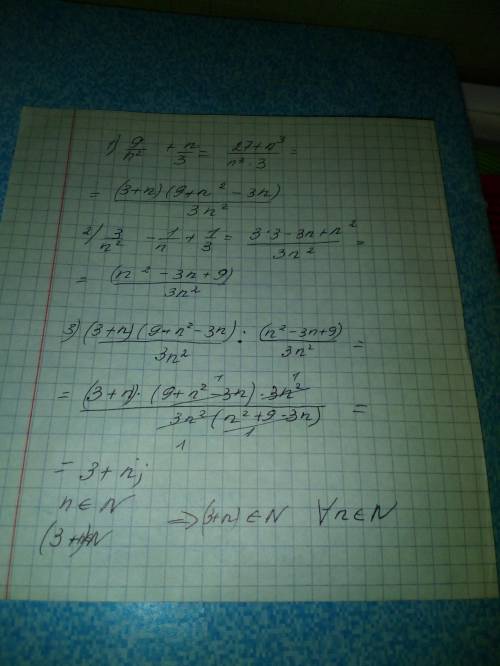 1) 9/n² + n/3 = (27+n³)/(n²·3) =
= (3+n)(9+n²-3n)/3n²
2) 3/n² - 1/n + 1/3 = (3·3-3n+n²)/3n² =
= (n²-3n+9)/3n²
3) (3+n)(9+n²-3n)/3n² : (n²-3n+9)/3n² =
= (3+n)·(9+n²-3n)·3n²/3n²(n²+9-3n) =
= 3+n;
n∈N
⇒(3+n)∈N ∀n∈N